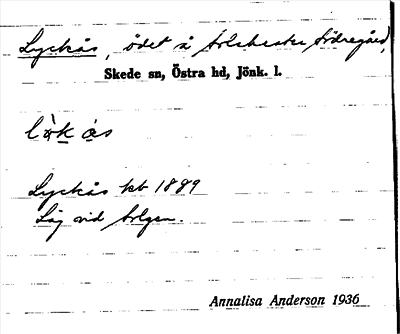 Lyckås, ödet å Solsbestee Södregård,
Skede sn, Östra hd, Jönk. l.
lỳk ås
Lyckås kb 1889
Låg vid Solgen.
Annalisa Anderson 1936